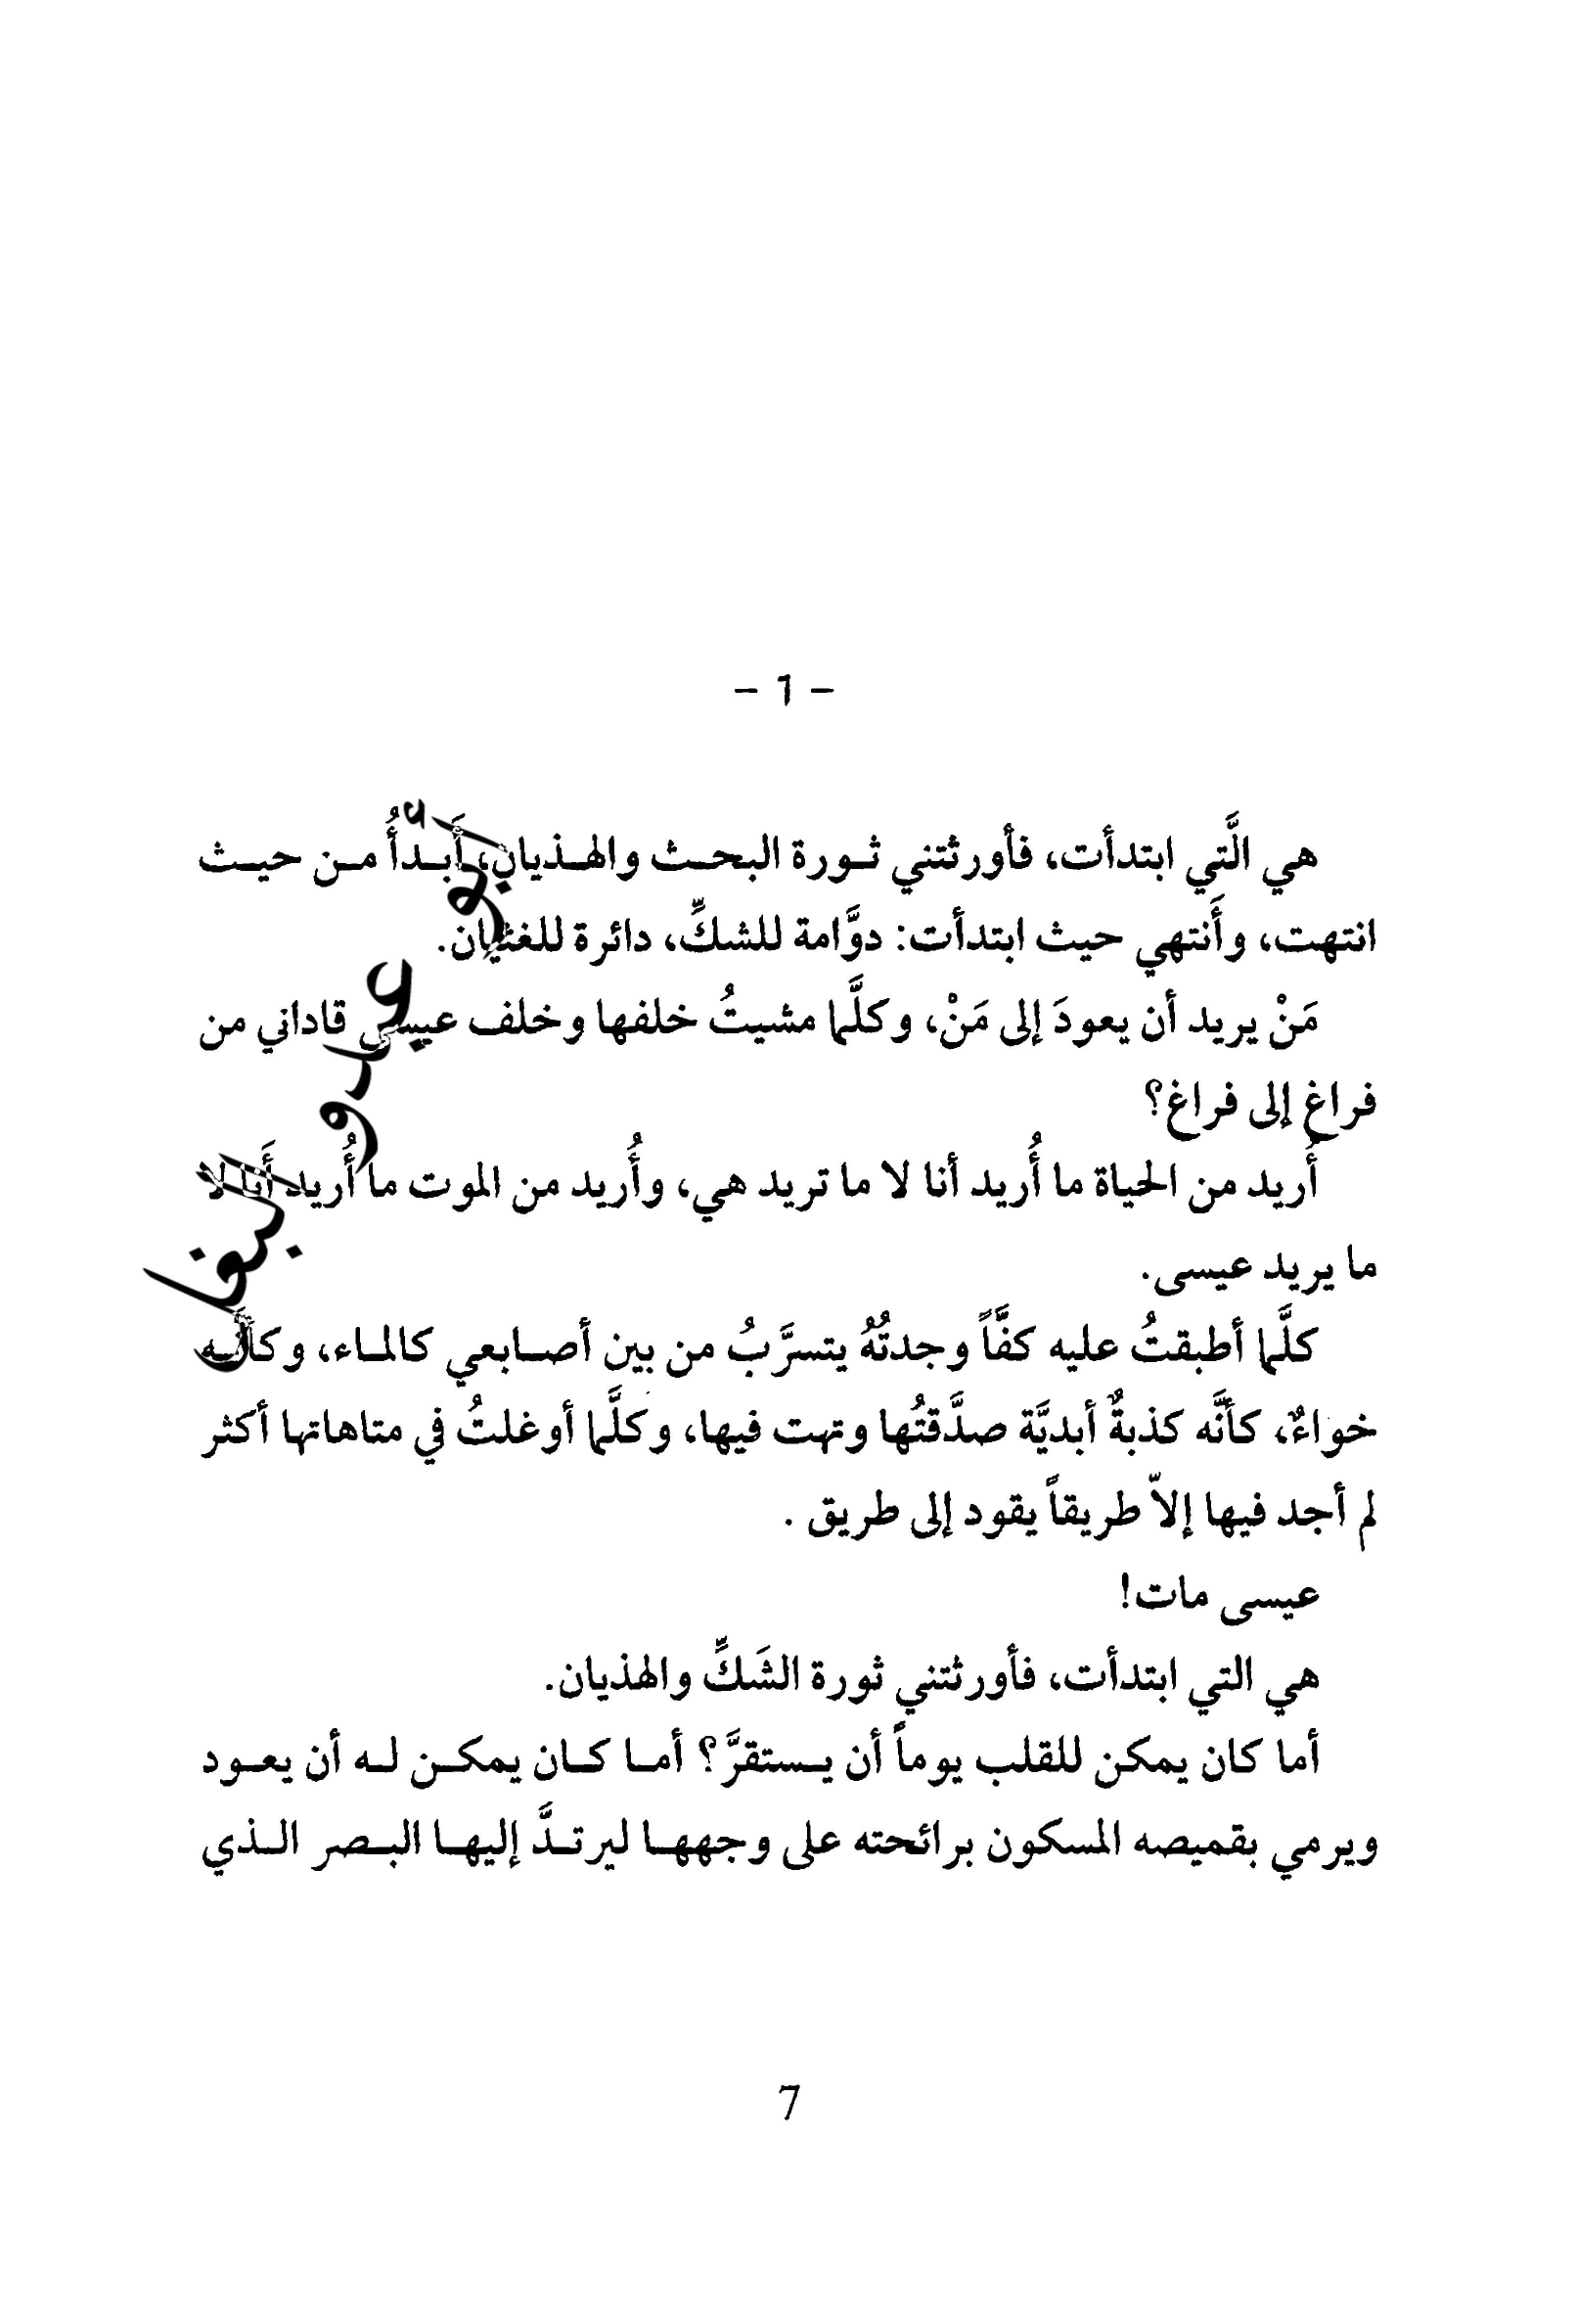 - 1 -
هي الَّتي ابتدأت، فأورثتني ثورة البحث والهذيان، أَبدأُ من حيث
انتهت، وأَنتهي حيث ابتدأت: دوَّامة للشكِّ، دائرة للغثيان.
مَنْ يريد أن يعودَ إلى مَنْ، وكلَّما مشيتُ خلفها وخلف عيسى قاداني من
فراغ إلى فراغ؟
أُريد من الحياة ما أُريد أنا لا ما تريد هي، وأُريد من الموت ما أُريد أَنا لا
ما يريد عيسى.
كلَّما أطبقتُ عليه كفَّاً وجدتُهُ يتسرَّبُ من بين أصابعي كالماء، وكأنَّه
خواءٌ، كأنَّه كذبةٌ أبديَّة صدَّقتُها وتهت فيها، وكلَّما أوغلتُ في متاهاتها أكثر
لم أجد فيها إلاّ طريقاً يقود إلى طريق .
عيسى مات!
هي التي ابتدأت، فأورثتني ثورة الشَكِّ والهذيان.
أما كان يمكن للقلب يوماً أن يستقرَّ؟ أما كان يمكن له أن يعود
ويرمي بقميصه المسكون برائحته على وجهها ليرتدَّ إليها البصر الذي
أبو عبدو البغل
7